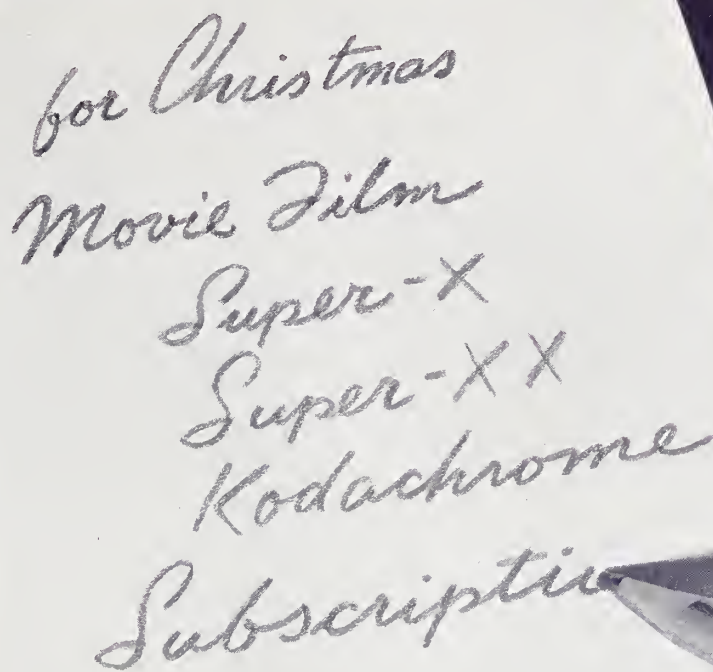 for Christmas
Movie Film
Super-X
Super-XX
Kodachrome
Subscripti